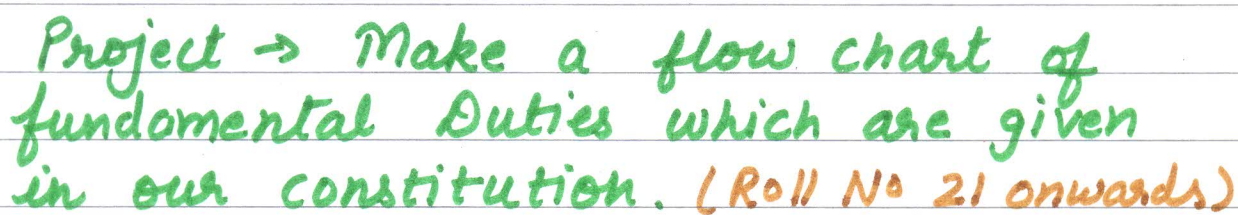 Project → Make a flow chart of
fundamental Duties which are given
in our constitution. (Roll No 21 onwards)